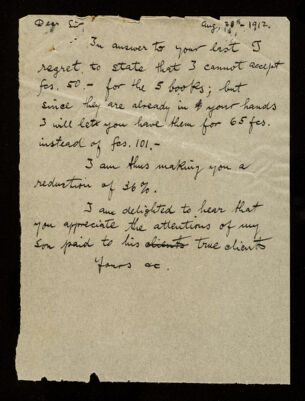 Dear Sir,
Aug, 1912.
In answer to your last I
regret to state that I cannot accept
fcs. 50.- for the 5 books; but
since they are already in your hands
I will let you have them for 65 fcs.
instead of fcs. 101.-
I am thus making you a
reduction of 36%.
I am delighted to hear that
you appreciate the attentions of my
son paid to his clients true clients
Yours &c.